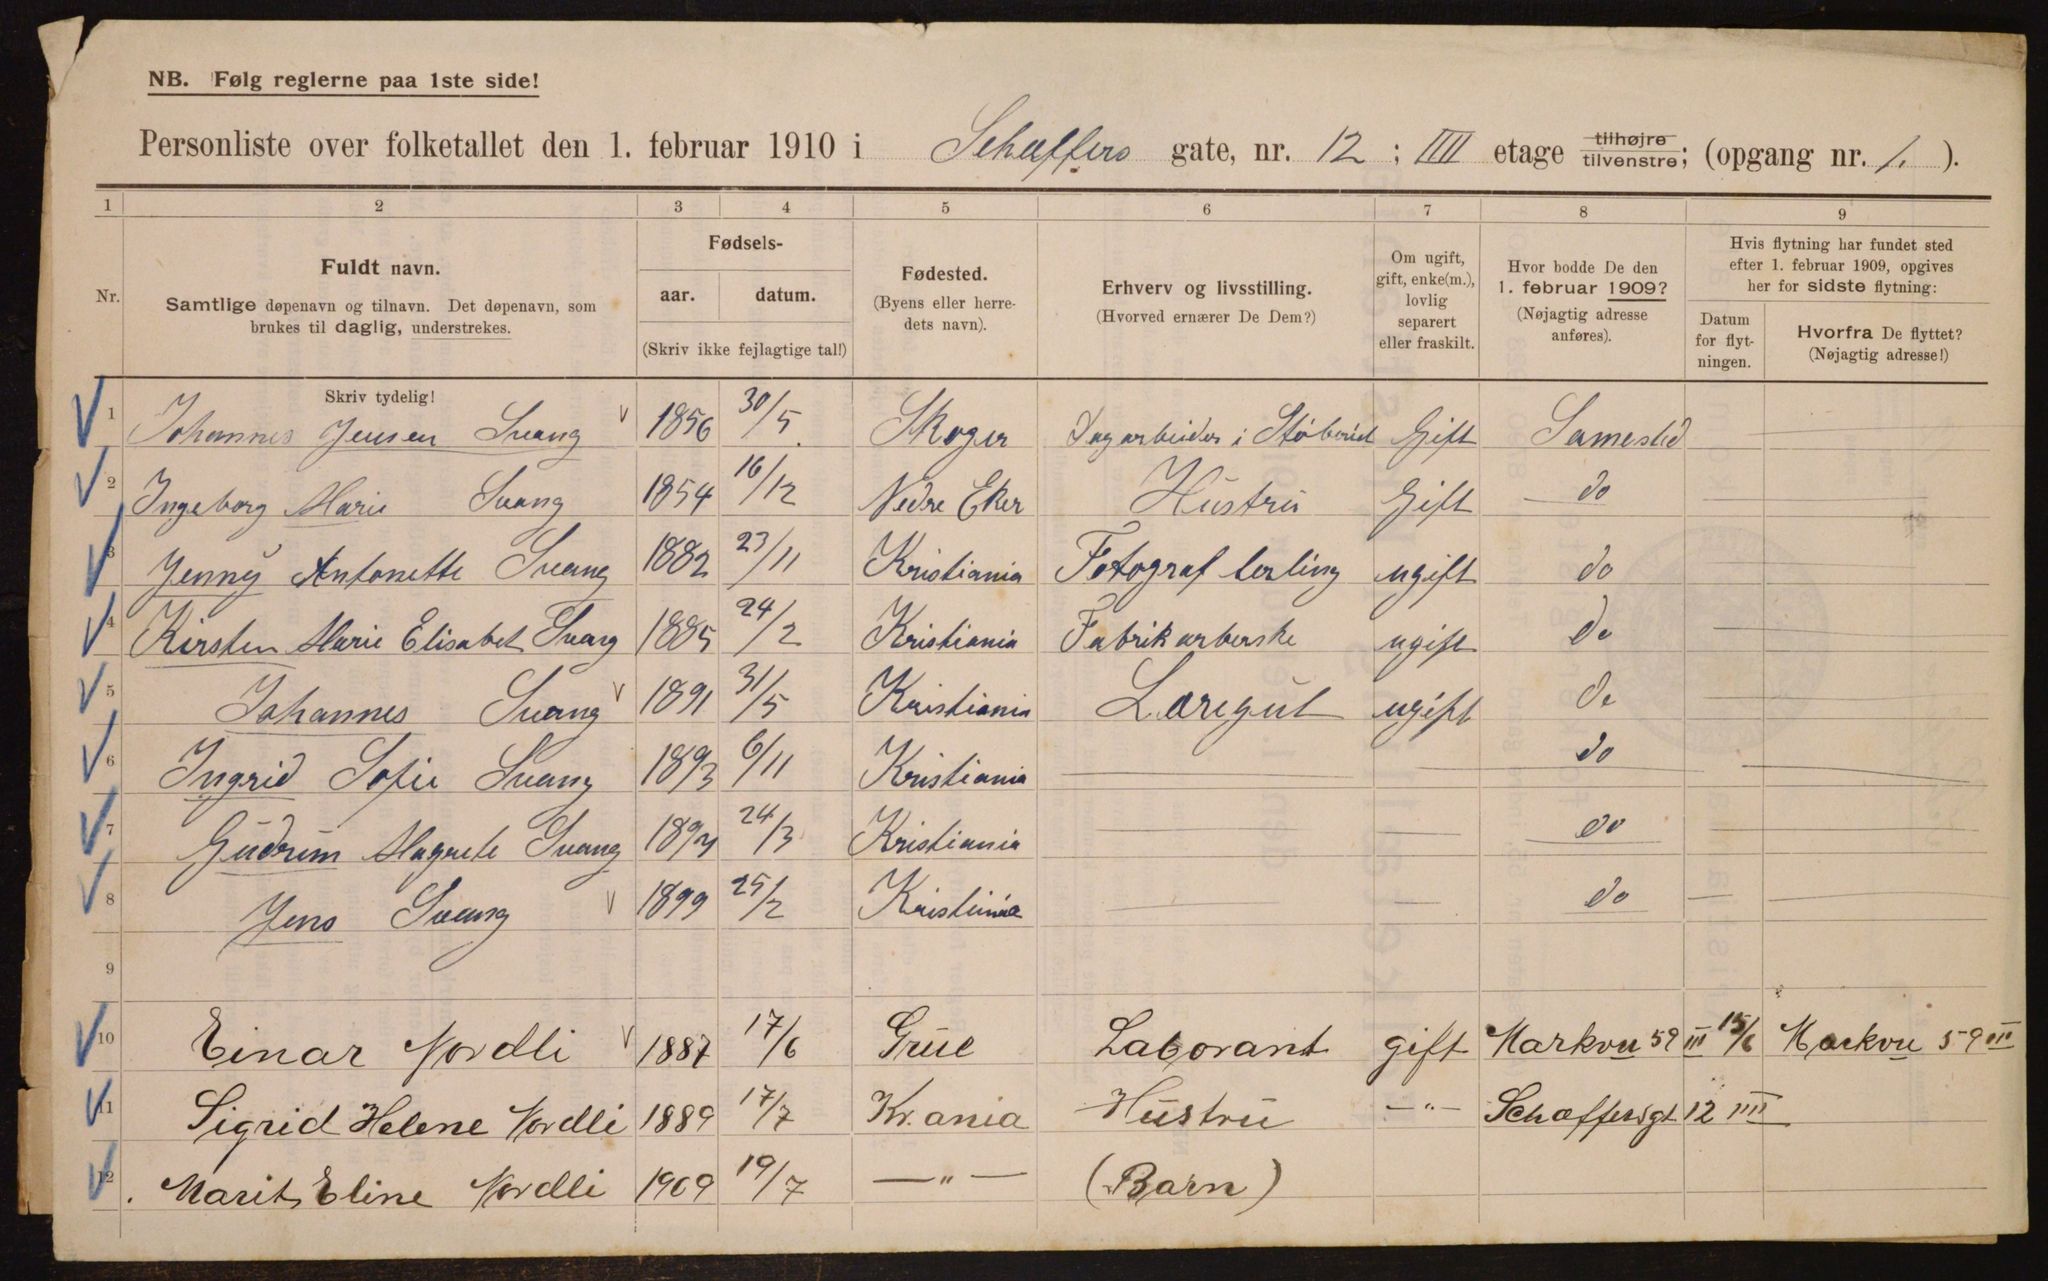 NB. Følg reglerne paa 1ste side!
Personliste over folketallet den 1. februar 1910 i Schæffers gate, nr. 12 ; IIII etage tilhøjre tilvenstre; (opgang nr. 1. ).
1 2 3 4 5 6 7 8 9
Nr.
Fuldt navn.
Samtlige døpenavn og tilnavn. Det døpenavn, som
brukes til daglig, understrekes.
Fødsels-
aar. datum.
(Skriv ikke fejlagtige tal!)
Fødested.
(Byens eller herre-
dets navn).
Erhverv og livsstilling.
(Hvorved ernærer De Dem?)
Om ugift,
gift, enke(m.),
lovlig
separert
eller fraskilt.
Hvor bodde De den
1. februar 1909?
(Nøjagtig adresse
anføres).
Hvis flytning har fundet sted
efter 1. februar 1909, opgives
her for sidste flytning:
Datum
for flyt-
ningen.
Hvorfra De flyttet?
(Nøjagtig adresse!)
Skriv tydelig!
1 Johannes Jensen Svang 1856 30/5. Skoger Dagarbeider i Støberiet Gift Samested
2 Ingeborg Marie Svang 1854 16/12 Nedre Eker Hustru Gift do
3 Jenny Antonette Svang 1882 23/11 Kristiania Fotograf lerling ugift do
4 Kirsten Marie Elisabet Svang 1885 24/2 Kristiania Fabrikarberske ugift do
5 Johannes Svang 1891 31/5 Kristiania Læregut ugift do
6 Ingrid Sofie Svang 1893 6/11 Kristiania do
7 Gudrun Magrete Svang 24/3 Kristiania do
8 Jens Svang 1899 25/2 Kristiania do
9
10 Einar Nordli 1887 17/6 Grue Laborant gift Markvu 59 III 15/6 Markvu 59 III
11 Sigrid Helene Nordli 1889 17/7 Kr.ania Hustru -"- Schæffersgt 12 IIII
12 Marit Eline Nordli 1909 19/7 -"- (Barn)